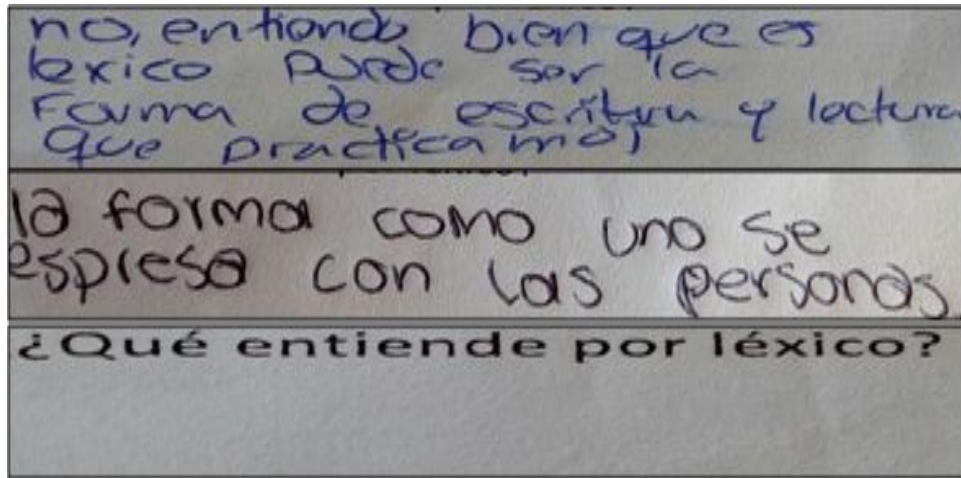 no, entiendo bien que es
lexico puede ser la
Forma de escritura y lectura
que practicamos
la forma como uno se
espresa con las personas
¿Qué entiende por léxico?